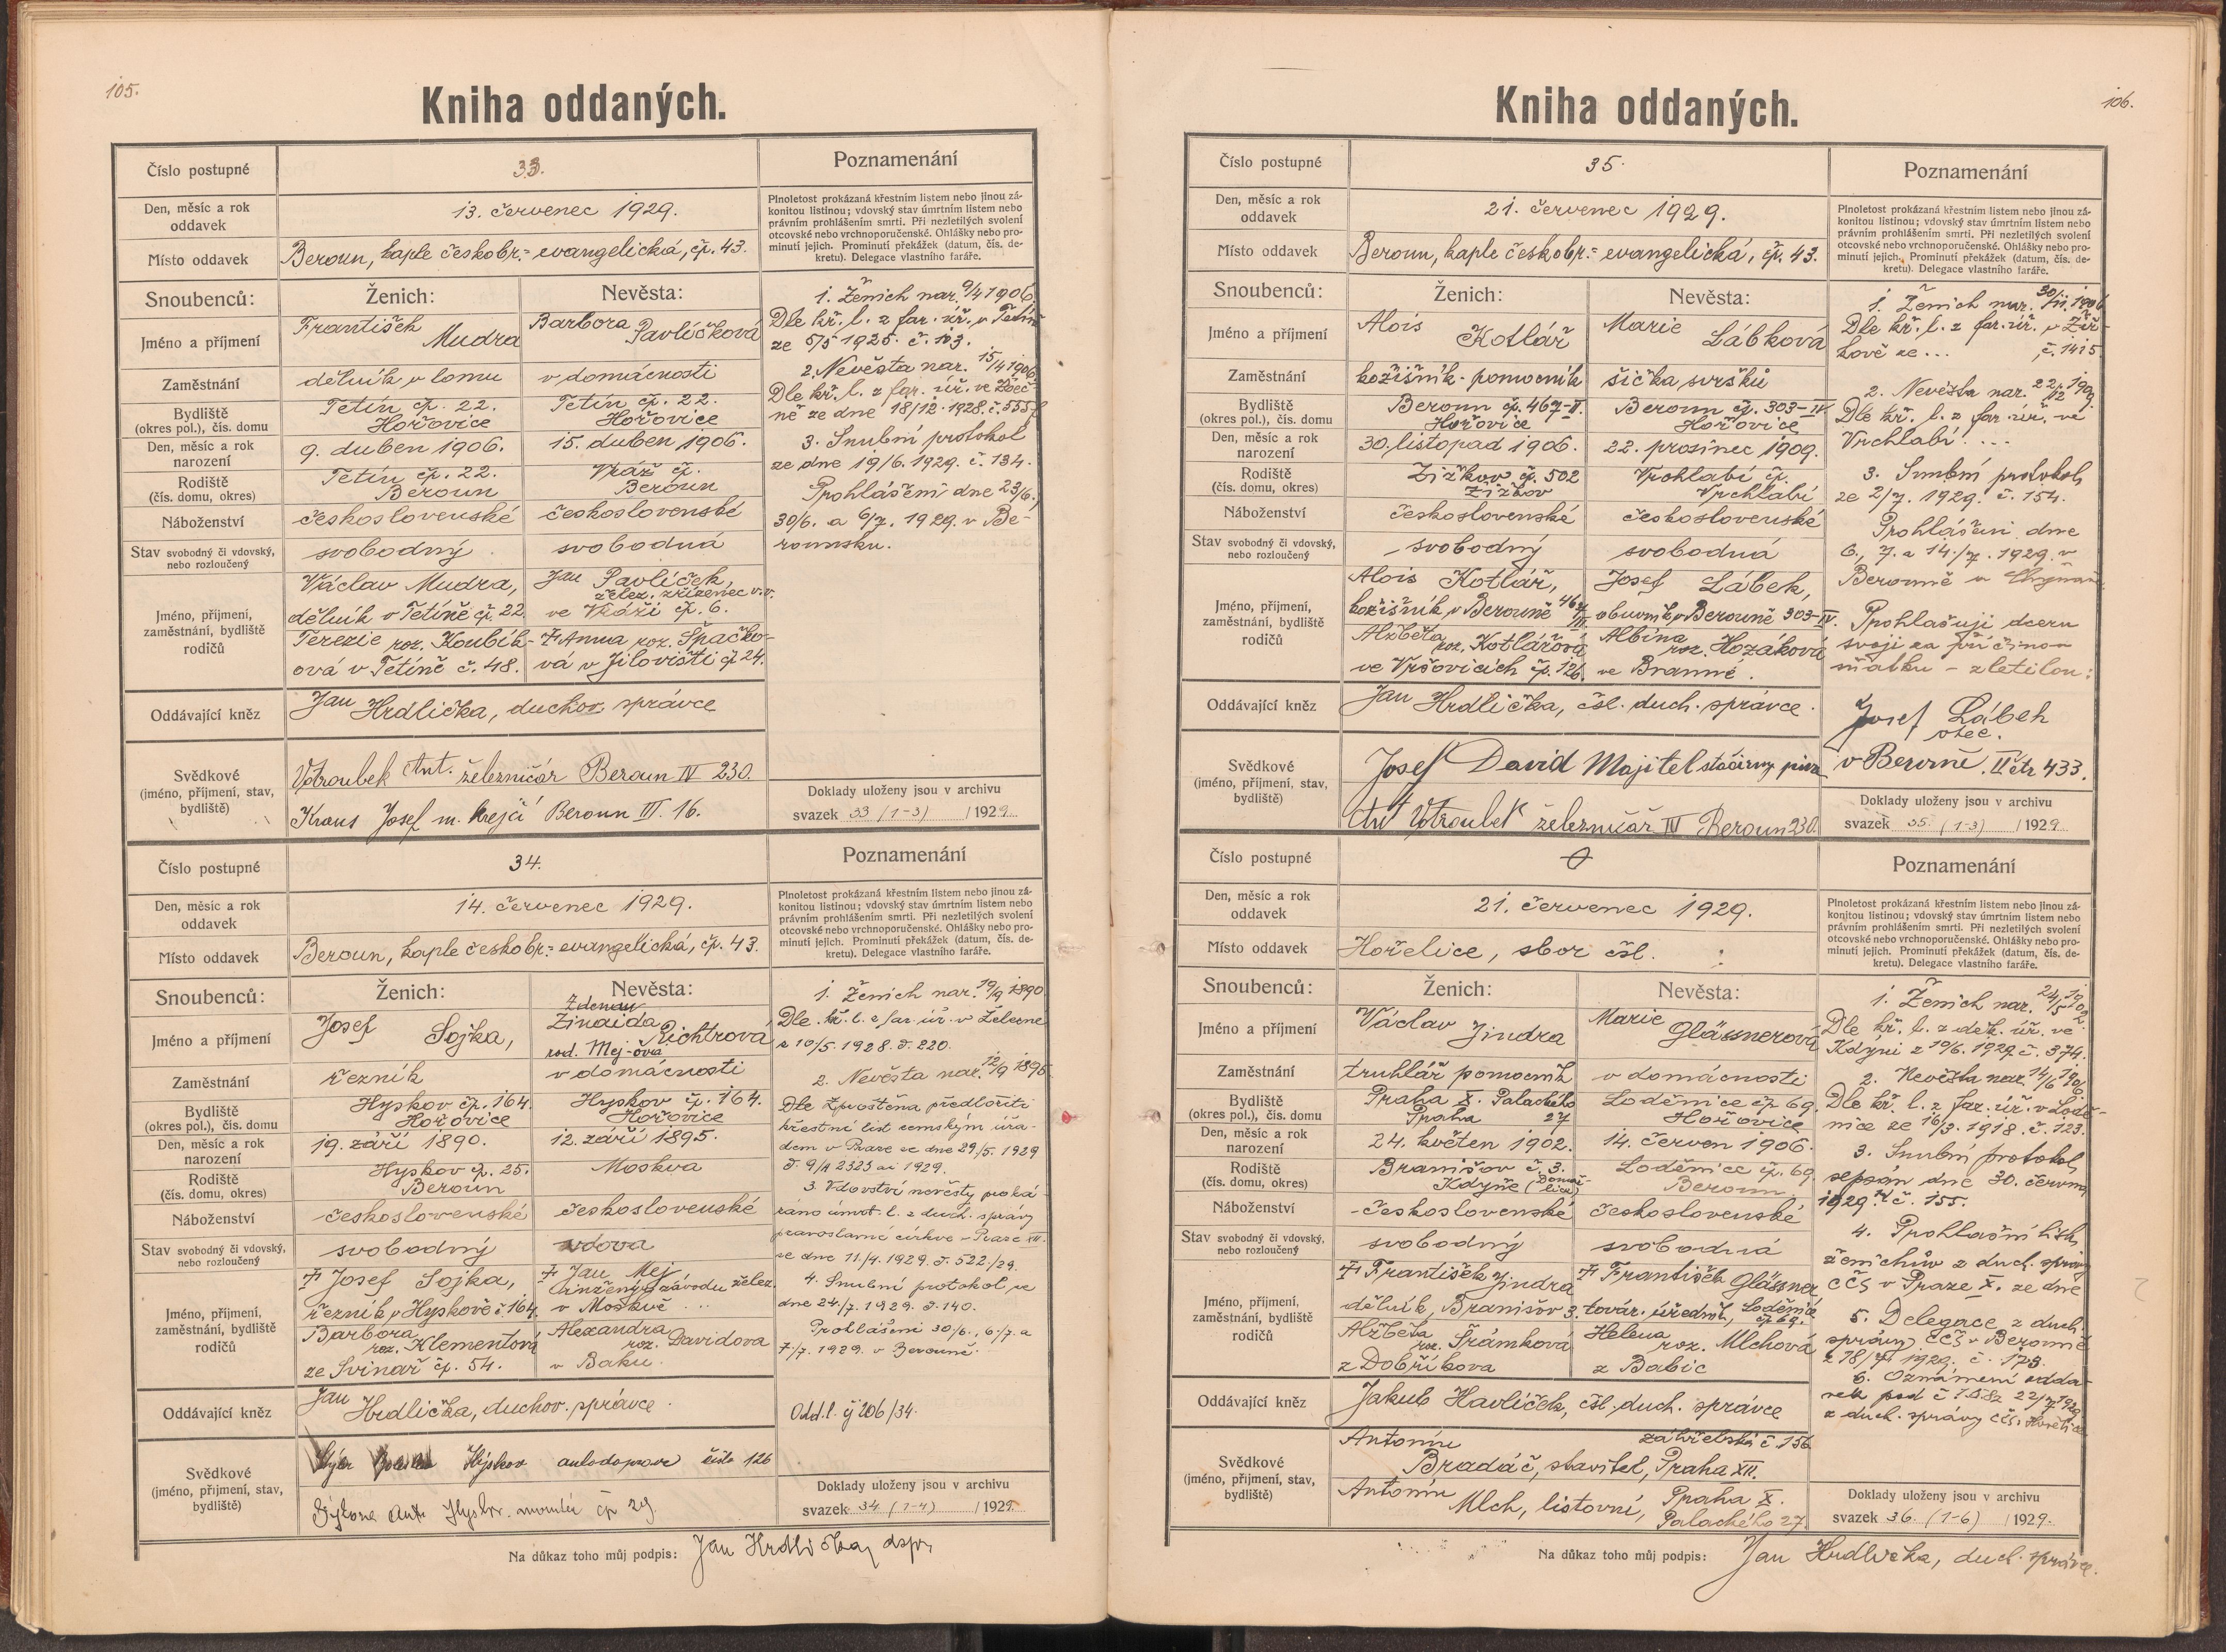 105.
Kniha oddaných.
Číslo postupné
33.
Poznamenání
Den, měsíc a rok
oddavek
13. červenec 1929.
Plnoletost prokázaná křestním listem nebo jinou zá-
konitou listinou; vdovský stav úmrtním listem nebo
právním prohlášením smrti. Při nezletilých svolení
otcovské nebo vrchnoporučenské. Ohlášky nebo pro-
minutí jejich. Prominutí překážek (datum, čís. de-
kretu). Delegace vlastního faráře.
Místo oddavek
Beroun, kaple českobr.= evangelická, čp. 43.
Snoubenců:
Ženich:
Nevěsta:
Jméno a příjmení
František
Mudra
Barbora
Pavlíčková
Zaměstnání
dělník v lomu
v domácnosti
Bydliště
(okres pol.), čís. domu
Tetín čp. 22.
Hořovice
Tetín čp. 22.
Hořovice
Den, měsíc a rok
narození
9. duben 1906.
15. duben 1906.
Rodiště
(čís. domu, okres)
Tetín čp. 22.
Beroun
Vráž čp.
Beroun
Náboženství
československé
československé
Stav svobodný či vdovský,
nebo rozloučený
svobodný
svobodná
Jméno, příjmení,
zaměstnání, bydliště
rodičů
Václav Mudra,
dělník v Tetíně čp. 22.
Terezie roz. Koubík-
ová v Tetíně č. 48.
Jan Pavlíček,
želez. zřízenec v.v.
ve Vráži čp. 6.
Anna roz. Špačko-
vá v Jílovišti čp 24.
1. Ženich nar. 9/4 1906.
Dle kř. l. z far. úř. v Tetíně
ze 5/5 1925. č. 103.
2. Nevěsta nar. 15/4 1906
Dle kř. l. z far. úř. ve Zbeč-
ně ze dne 18/12 1928. č. 555
3. Snubní protokol
ze dne 19/6. 1929. č. 134.
Prohlášení dne 23/6.,
30/6. a 6/7. 1929. v Be-
rounsku.
Oddávající kněz
Jan Hrdlička, duchov. správce
Svědkové
(jméno, příjmení, stav,
bydliště)
Votroubek Ant. železničář Beroun IV 230.
Kraus Josef m. krejčí Beroun III. 16.
Doklady uloženy jsou v archivu
svazek 33 (1-3) / 1929.
Číslo postupné
34.
Poznamenání
Den, měsíc a rok
oddavek
14. červenec 1929.
Plnoletost prokázaná křestním listem nebo jinou zá-
konitou listinou; vdovský stav úmrtním listem nebo
právním prohlášením smrti. Při nezletilých svolení
otcovské nebo vrchnoporučenské. Ohlášky nebo pro-
minutí jejich. Prominutí překážek (datum, čís. de-
kretu). Delegace vlastního faráře.
Místo oddavek
Beroun, kaple českobr.= evangelická, čp. 43.
Snoubenců:
Ženich:
Nevěsta:
Jméno a příjmení
Josef Sojka,
Zinaida
Richtrová
rod. Mej-ová
Zaměstnání
řezník
v domácnosti
Bydliště
(okres pol.), čís. domu
Hyskov čp. 164.
Hořovice
Hyskov č. 164.
Hořovice
Den, měsíc a rok
narození
19. září 1890.
12. září 1895.
Rodiště
(čís. domu, okres)
Hyskov čp. 25.
Beroun
Moskva
Náboženství
československé
československé
Stav svobodný či vdovský,
nebo rozloučený
svobodný
vdova
Jméno, příjmení,
zaměstnání, bydliště
rodičů
Josef Sojka,
řezník v Hyskově č. 164.
Barbora
roz. Klementová
ze Svinař čp. 54.
Jan Mej,
inženýr závodu želez.
v Moskvě
Alexandra
roz. Davidova
v Baku.
1. Ženich nar. 19/9 1890
Dle kř. l. z far. úř. v Železné
z 10/5. 1928. č. 220.
2. Nevěsta nar. 12/9 1895
Dle zproštěna předložiti
křestní list zemským úřa-
dem v Praze ze dne 29/5. 1929
3. Vdovství nevěsty proká-
záno úmrt. l. z duch. správy
pravoslavné církve - Praze XII.
ze dne 11/4. 1929. č. 522/29.
4. Snubní protokol ze
dne 24/7. 1929. č. 140.
Prohlášení 30/6., 6./7. a
7./7. 1929. v Berouně.
Oddávající kněz
Jan Hrdlička, duchov. správce
Odd. l. čj 206/34.
Svědkové
(jméno, příjmení, stav,
bydliště)
Hýskov autodoprava číslo 126
Sýkora Ant. Hyskov. montér čp 29
Doklady uloženy jsou v archivu
svazek 34 (1-4) / 1929
Na důkaz toho můj podpis: Jan Hrdlička, dspr.
106.
Kniha oddaných.
Číslo postupné
35.
Poznamenání
Den, měsíc a rok
oddavek
21. červenec 1929.
Plnoletost prokázaná křestním listem nebo jinou zá-
konitou listinou; vdovský stav úmrtním listem nebo
právním prohlášením smrti. Při nezletilých svolení
otcovské nebo vrchnoporučenské. Ohlášky nebo pro-
minutí jejich. Prominutí překážek (datum, čís. de-
kretu). Delegace vlastního faráře.
Místo oddavek
Beroun, kaple českobr.= evangelická, čp. 43.
Snoubenců:
Ženich:
Nevěsta:
Jméno a příjmení
Alois
Kotlář
Marie
Lábková
Zaměstnání
kožišník-pomocník
šička svršků
Bydliště
(okres pol.), čís. domu
Beroun čp. 467-II.
Hořovice
Beroun čp. 303-IV
Hořovice
Den, měsíc a rok
narození
30. listopad 1906.
22. prosinec 1909.
Rodiště
(čís. domu, okres)
Žižkov čp. 502
Žižkov
Vrchlabí čp.
Vrchlabí
Náboženství
československé
československé
Stav svobodný či vdovský,
nebo rozloučený
svobodný
svobodná
Jméno, příjmení,
zaměstnání, bydliště
rodičů
Alois Kotlář,
kožišník, v Berouně 467/II.
Alžběta
roz. Kotlářová
ve Vršovicích čp. 126.
Josef Lábek,
obuvník v Berouně 303-IV.
Albína
roz. Hozáková
ve Branné.
1. Ženich nar. 30/11. 1906
Dle kř. l. z far. úř. v Žiž-
kově ze ... č. 1415.
2. Nevěsta nar. 22/12 1909.
Dle kř. l. z far. úř. ve
Vrchlabí. ...
3. Snubní protokol
ze 2/7. 1929. č. 154.
Prohlášení dne
6., 7. a 14./7. 1929. v
Berouně
Prohlašuji dceru
svoji za příčinou
sňatku - zletilou:
Josef Lábek
otec.
v Berouně. II čtr 433.
Oddávající kněz
Jan Hrdlička, čsl. duch. správce.
Svědkové
(jméno, příjmení, stav,
bydliště)
Josef David Majitel stáčírny piva
Ant Votroubek železničář IV Beroun 230.
Doklady uloženy jsou v archivu
svazek 35. (1-3) / 1929.
Číslo postupné
Poznamenání
Den, měsíc a rok
oddavek
21. červenec 1929.
Plnoletost prokázaná křestním listem nebo jinou zá-
konitou listinou; vdovský stav úmrtním listem nebo
právním prohlášením smrti. Při nezletilých svolení
otcovské nebo vrchnoporučenské. Ohlášky nebo pro-
minutí jejich. Prominutí překážek (datum, čís. de-
kretu). Delegace vlastního faráře.
Místo oddavek
Hořelice, sbor čsl.
Snoubenců:
Ženich:
Nevěsta:
Jméno a příjmení
Václav
Jindra
Marie
Glässnerová
Zaměstnání
truhlář pomocník
v domácnosti
Bydliště
(okres pol.), čís. domu
Praha X. Palackého
Praha 27
Loděnice čp 69.
Hořovice
Den, měsíc a rok
narození
24. květen 1902.
14. červen 1906.
Rodiště
(čís. domu, okres)
Branišov č. 3.
Kdyně (Domaž-
lice)
Loděnice čp. 69
Beroun
Náboženství
československé
československé
Stav svobodný či vdovský,
nebo rozloučený
svobodný
svobodná
Jméno, příjmení,
zaměstnání, bydliště
rodičů
František Jindra
dělník, Branišov 3.
Alžběta
roz. Šrámková
z Dobříkova
František Glässner
továr. úředník, Loděnice
čp 69.
Helena
roz. Mlchová
z Babic
1. Ženich nar. 24/5 1902.
Dle kř. l. z děk. úř. ve
Kdyni z 19/6. 1929 č. 374.
2. Nevěsta nar. 14/6 1906.
Dle kř. l. z far. úř. v Lodě-
nice ze 16/3. 1918. č. 123.
3. Snubní protokol
sepsán dne 30. června
1929. č. 155.
4. Prohlašní list
ženichův z duch. správy
CČS v Praze X. ze dne
5. Delegace z duch.
správy CČS v Berouně
z 18/7 1929, č. 173.
6. Oznámení odda-
vek pod č
z duch. správy ččs. Hořelice
Oddávající kněz
Jakub Havlíček, čsl. duch. správce
Svědkové
(jméno, příjmení, stav,
bydliště)
Antonín
Bradáč, stavitel, Praha XII.
Antonín
Mlch, listovní, Praha X.
Palackého 27
Doklady uloženy jsou v archivu
svazek 36. (1-6) / 1929.
Na důkaz toho můj podpis: Jan Hrdlička, duch. správce.